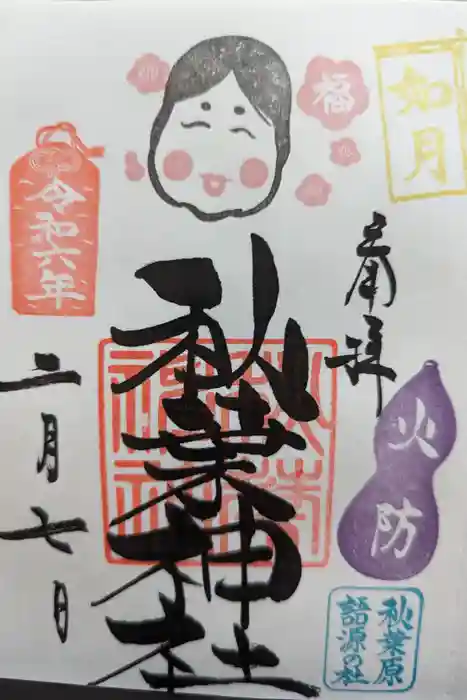 如月
福
奉拝
火防
秋葉原
語源の社
秋葉神社
令和六年
二月七日